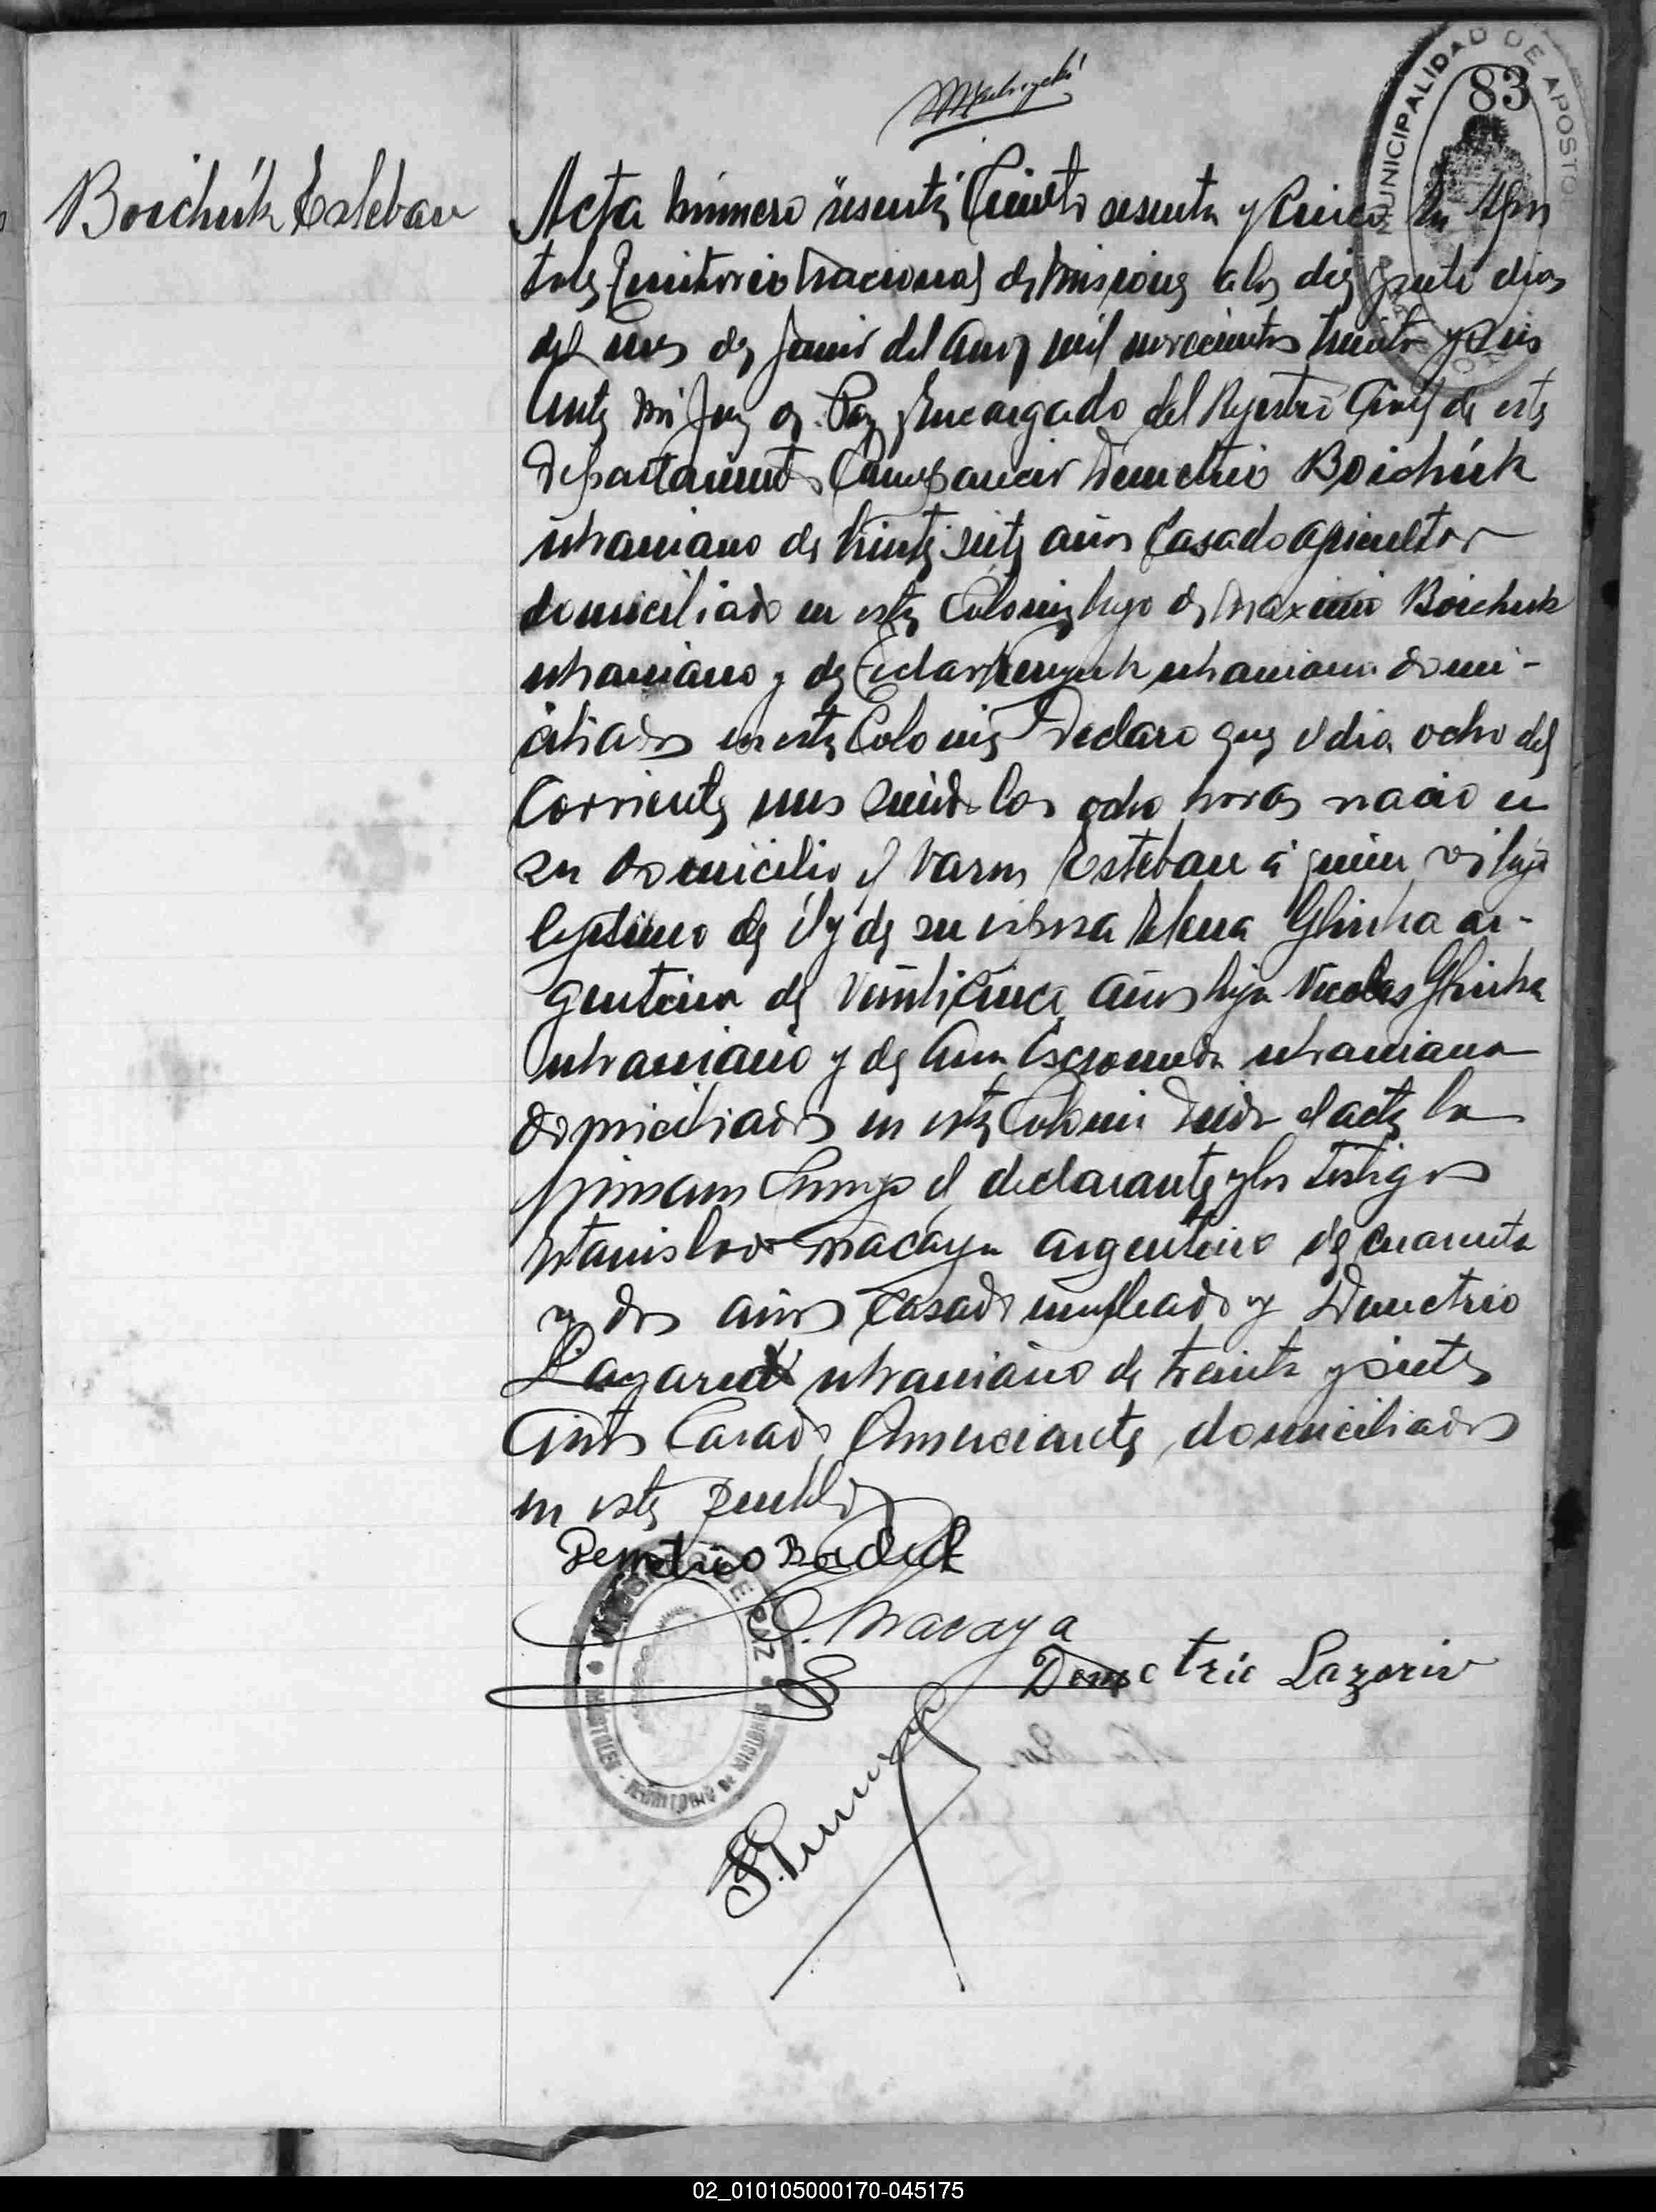 83
MUNICIPALIDAD DE APOSTO
Boichúk Esteban
Acta número sesenta Ciento sesenta y Cinco En Após
toles Territorio Nacional de Misiones a los diez y siete dias
del mes de Junio del año mil novecientos treinta y seis
Ante mi Juez de Paz Encargado del Rejistro Civil de este
Departamento Compareció Demetrio Boichúk
ukraniano de treinta siete años Casado agricultor
domiciliado en esta Colonia hijo de Maximo Boichuk
ukraniano y de ukraniana domi-
ciliados en esta Colonia Declaró que el dia ocho del
Corriente mes siendo las ocho horas nació en
su domicilio el varon Esteban á quien vi hijo
lejitimo de él y de su esposa Elena Ghirka ar-
gentina de veinticinco años hija Nicolas Ghirka
ukraniano y de Ana ukraniana
domiciliados en esta Colonia Leida el acta la
firman Conmigo el declarante y los testigos
Stanislao Macaya argentino de cuarenta
y dos años Casado empleado y Demetrio
Lazaruk ukraniano de treinta y siete
años Casado Comerciante domiciliados
en este pueblo
Demetrio
Macaya
Demetrio Lazoriw
DE PAZ
TERRITORIO DE MISIONES
02_010105000170-045175